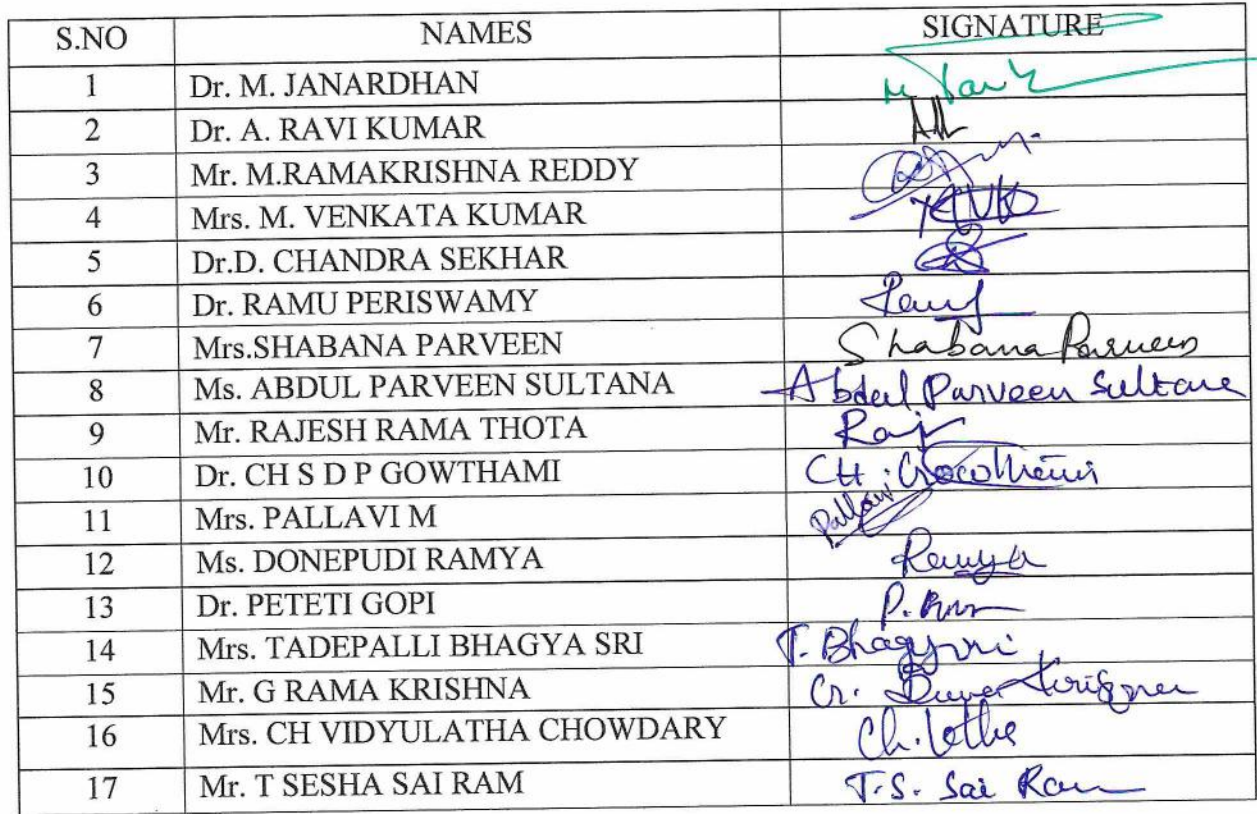 S.NO NAMES SIGNATURE
1 Dr. M. JANARDHAN
2 Dr. A. RAVI KUMAR
3 Mr. M.RAMAKRISHNA REDDY
4 Mrs. M. VENKATA KUMAR
5 Dr.D. CHANDRA SEKHAR
6 Dr. RAMU PERISWAMY
7 Mrs.SHABANA PARVEEN Shabana Parveen
8 Ms. ABDUL PARVEEN SULTANA Abdul Parveen Sultana
9 Mr. RAJESH RAMA THOTA
10 Dr. CH S D P GOWTHAMI CH. Gowthami
11 Mrs. PALLAVI M Pallavi
12 Ms. DONEPUDI RAMYA Ramya
13 Dr. PETETI GOPI P.
14 Mrs. TADEPALLI BHAGYA SRI T. Bhagyasri
15 Mr. G RAMA KRISHNA G. Rama Krishna
16 Mrs. CH VIDYULATHA CHOWDARY Ch. Latha
17 Mr. T SESHA SAI RAM T.S. Sai Ram